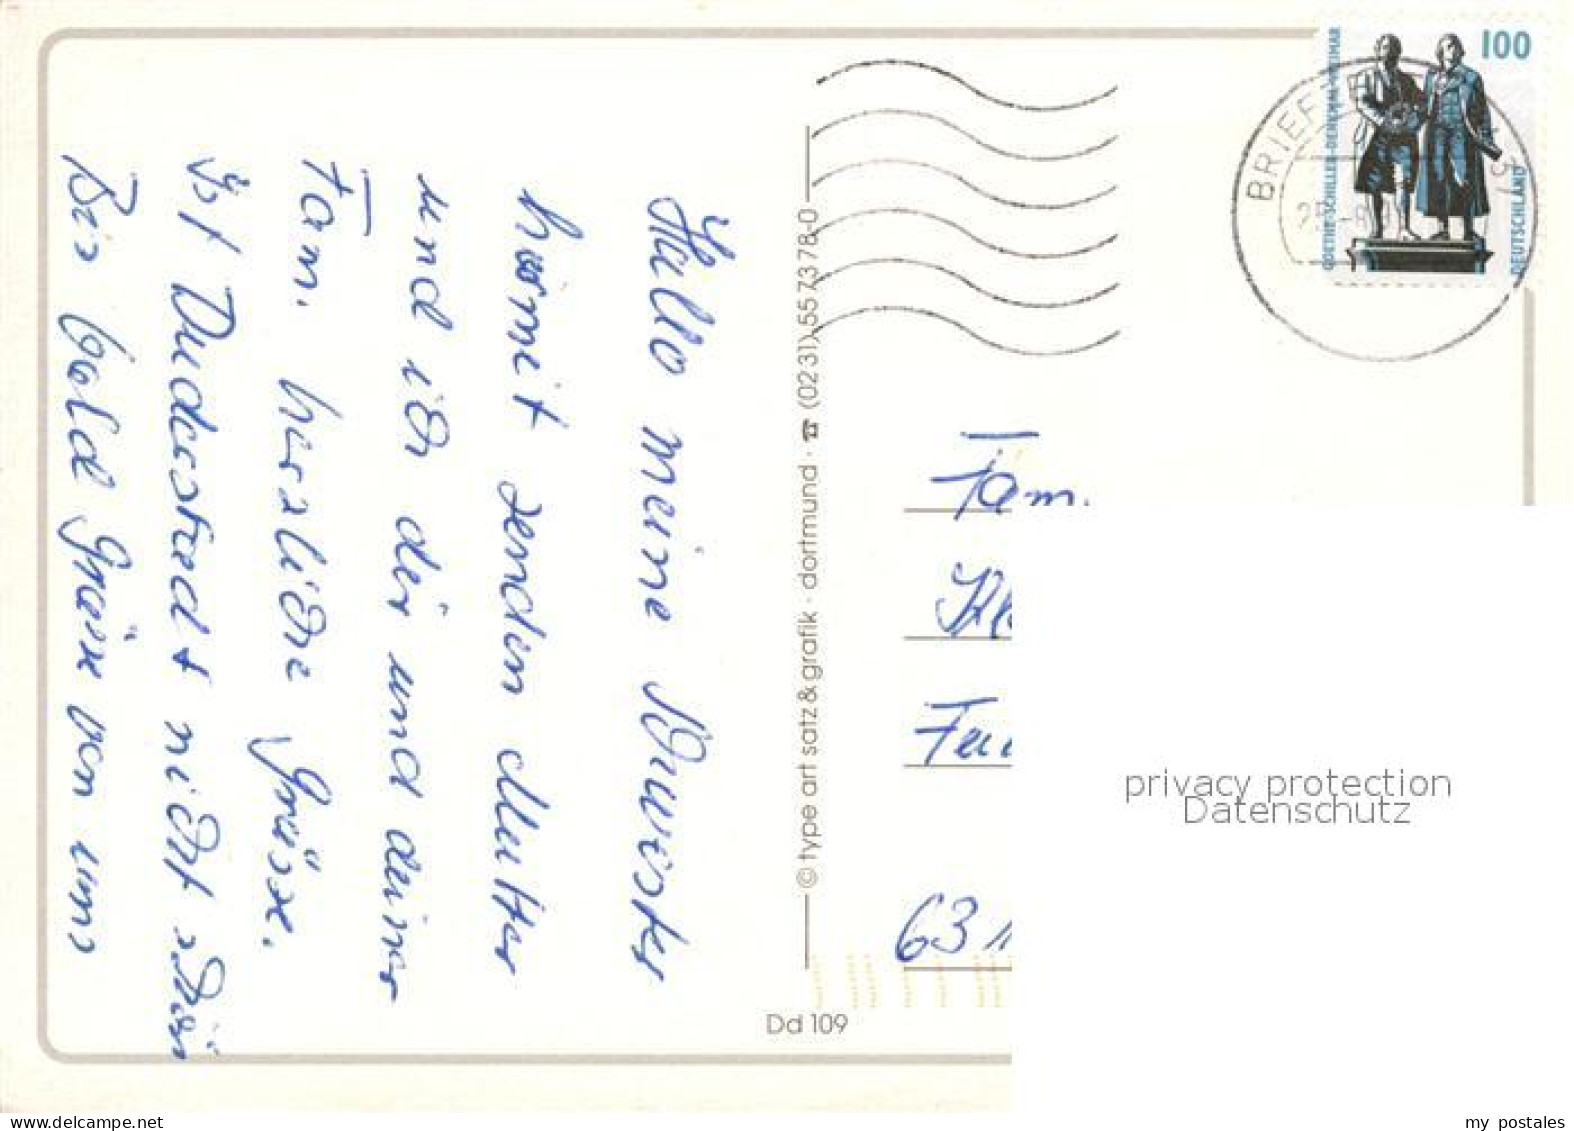 Hallo meine Schwester
hiermit senden Mutter
und ich dir und deiner
Fam. herzliche Grüsse.
Ist Duderstadt nicht schön
Bis bald Grüsse von uns
© type art satz & grafik · dortmund · ☎ (0231) 557378-0
Dd 109
100
GOETHE-SCHILLER-DENKMAL WEIMAR
DEUTSCHLAND
BRIEF
Fam.
63
privacy protection
Datenschutz
my postales